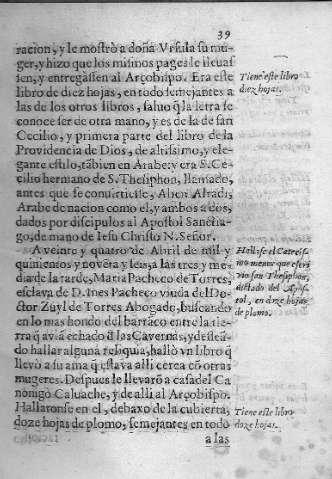 39
racion, y le mostrò a doña Vrsula su mu-
ger, y hizo que los mismos pages le lleuas
sen, y entregassen al Arçobispo. Era este
libro de diez hojas, en todo semejantes a
las de los otros libros, saluo q̃ la letra se
conoce ser de otra mano, y es de la de san
Cecilio, y primera parte del libro de la
Prouidencia de Dios, de altissimo, y ele-
gante estilo, tãbien en Arabe: y era S. Ce-
cilio hermano de S. Thesiphon, llamado,
antes que se conuirtiesse, Aben Alradi,
Arabe de nacion como el, y ambos a dos,
dados por discipulos al Apostol Sanctia-
go, de mano de Iesu Christo N. Señor.
A veinte y quatro de Abril de mil y
quinientos y nouẽta y seis, a las tres y me-
dia de la tarde, Maria Pacheco de Torres,
esclaua de D. Ines Pacheco viuda del Do-
ctor Zuyl de Torres Abogado, buscando
en lo mas hondo del barrãco entre la tie-
rra q̃ auiã echado d̃ las Cauernas, y desseã-
do hallar alguna reliquia, hallò vn libro q̃
lleuò a su ama q̃ estaua alli cerca cõ otras
mugeres. Despues le lleuarõ a casa del Ca
nonigo Caluache, y de alli al Arçobispo.
Hallaronse en el, debaxo de la cubierta,
doze hojas de plomo, semejantes en todo
a las
Tiene este libro
diez hojas.
Hallase el Catecis-
mo menor que escri
vio san Thesiphon,
dictado del Apos-
tol, en doze hojas
de plomo.
Tiene este libro
doze hojas.